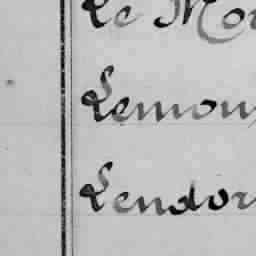 Le Mou
Lemou
Lendor